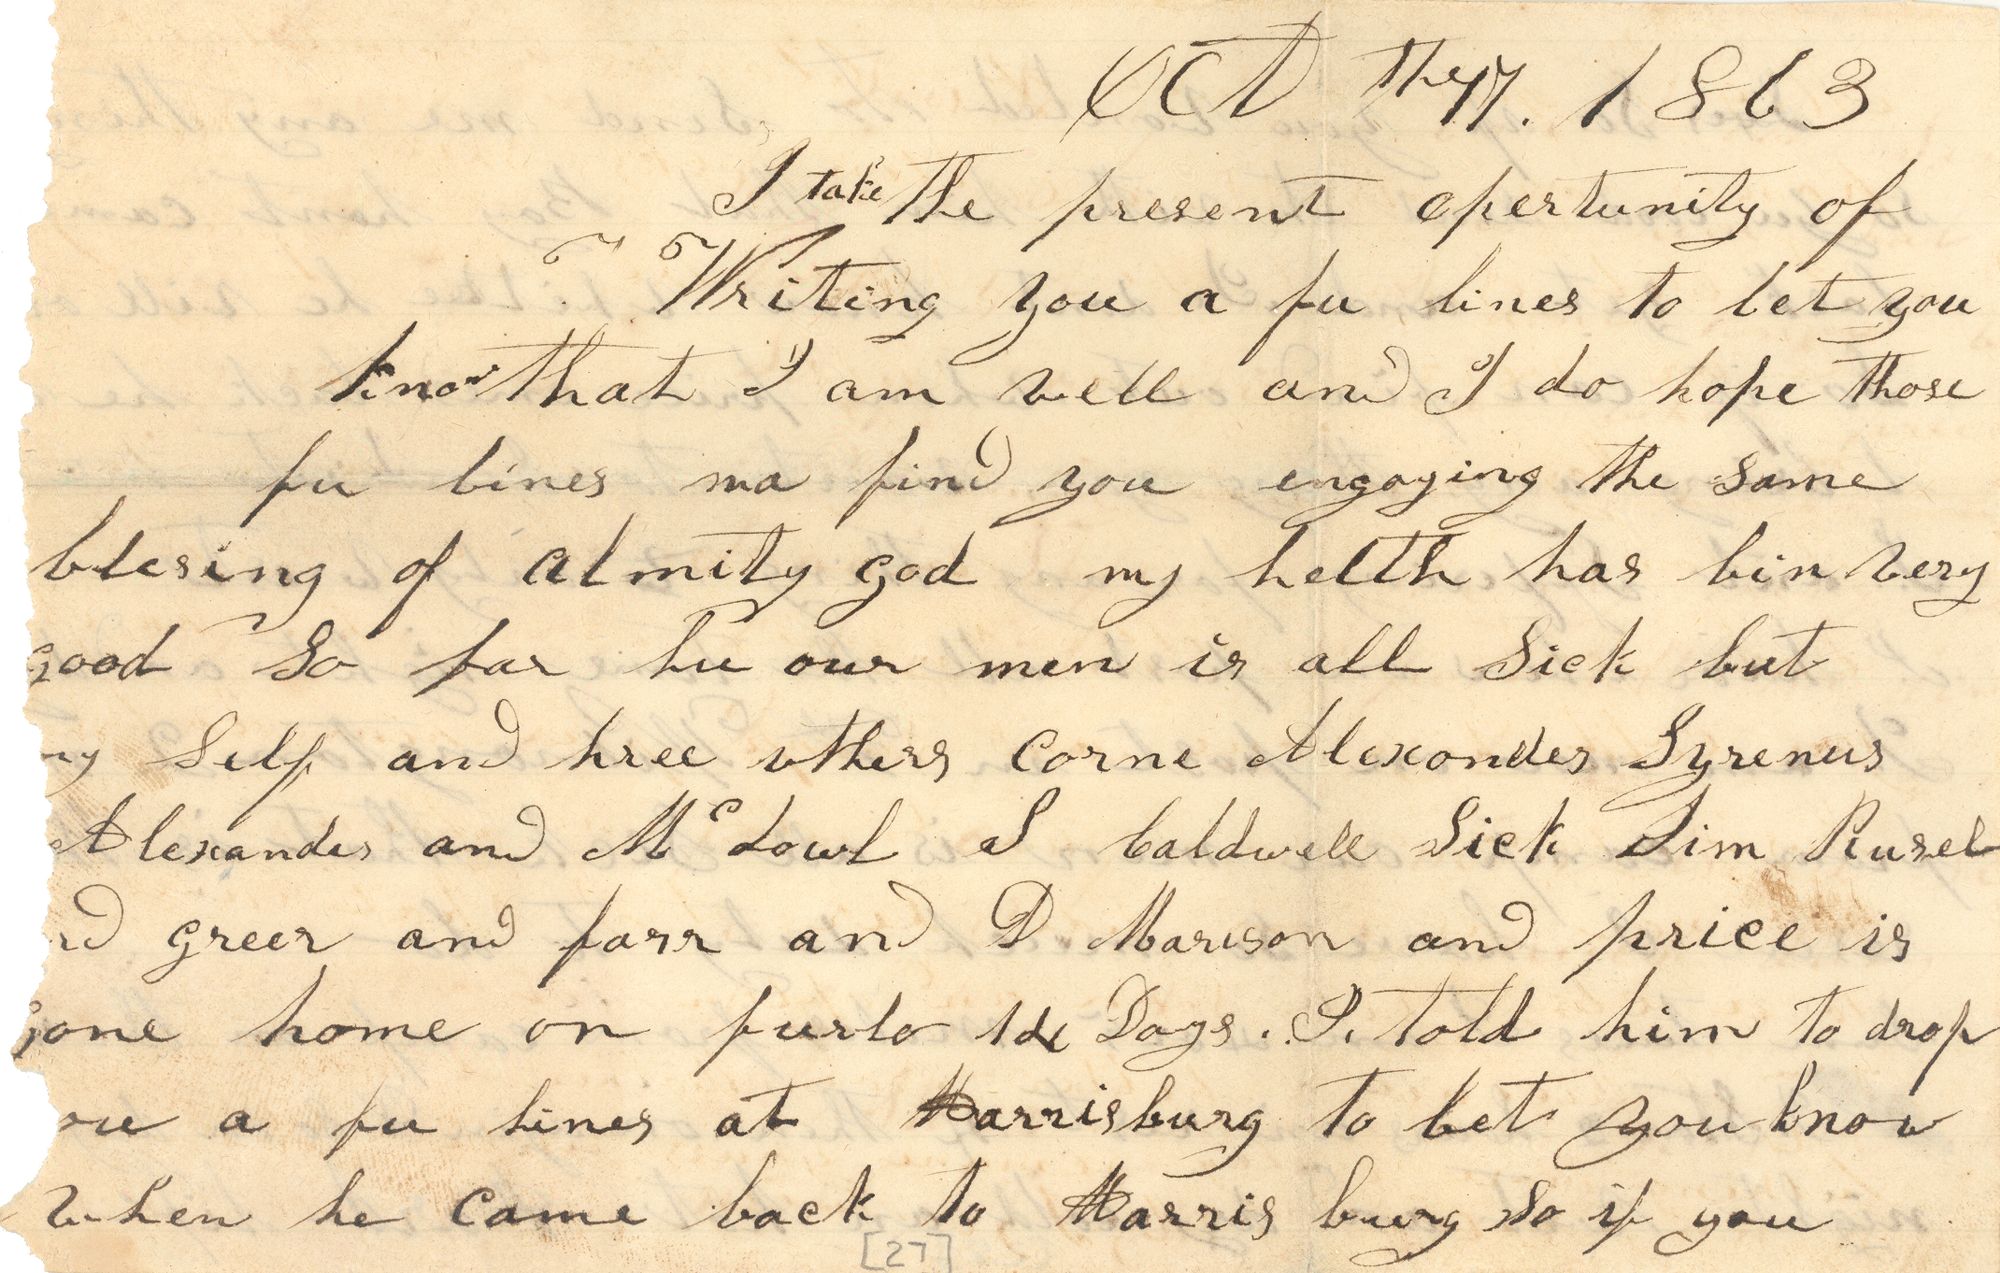 Oct The 17. 1863
I take the present opertunity of
Writing you a fu lines to let you
know that I am well and I do hope those
fu lines ma find you engoying the same
blesing of almity god my helth has bin very
good So far hu our men is all Sick but
my Self and hree others Corne Alexonder Syrenus
Alexander and McDowl S Caldwell Sick Jim Rusel
nd greer and farr and D Marison and price is
gone home on furlo Days. I. told him to drop
a fu lines at Harrisburg to let you know
when he came back to Harris burg So if you
[27]